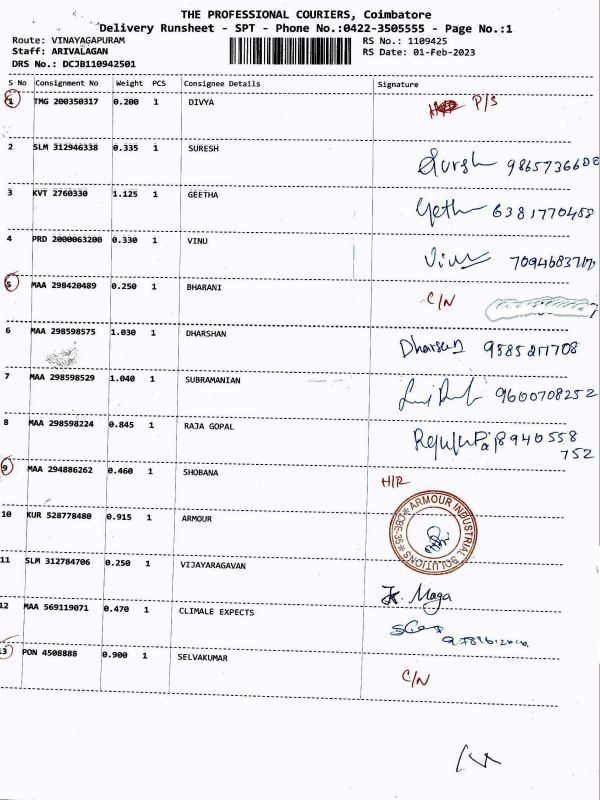 THE PROFESSIONAL COURIERS, Coimbatore
Delivery Runsheet - SPT - Phone No.:0422-3505555 - Page No.:1
Route: VINAYAGAPURAM RS No.: 1109425
Staff: ARIVALAGAN RS Date: 01-Feb-2023
DRS No.: DCJB110942501
S No Consignment No Weight PCS Consignee Details Signature
1 TMG 200350317 0.200 1 DIVYA P/S
2 SLM 312946338 0.335 1 SURESH Suresh 9865736608
3 KVT 2760330 1.125 1 GEETHA Geeth 6381770458
4 PRD 2000063200 0.330 1 VINU Vinu
5 MAA 298420489 0.250 1 BHARANI C/N
6 MAA 298598575 1.030 1 DHARSHAN
7 MAA 298598529 1.040 1 SUBRAMANIAN 9600708252
8 MAA 298598224 0.845 1 RAJA GOPAL 8940558
752
9 MAA 294886262 0.460 1 SHOBANA H/R
10 KUR 528778480 0.915 1 ARMOUR ARMOUR INDUSTRIAL SOLUTIONS CBE-35
11 SLM 312784706 0.250 1 VIJAYARAGAVAN Maga
12 MAA 569119071 0.470 1 CLIMALE EXPECTS
13 PON 4508888 0.900 1 SELVAKUMAR C/N